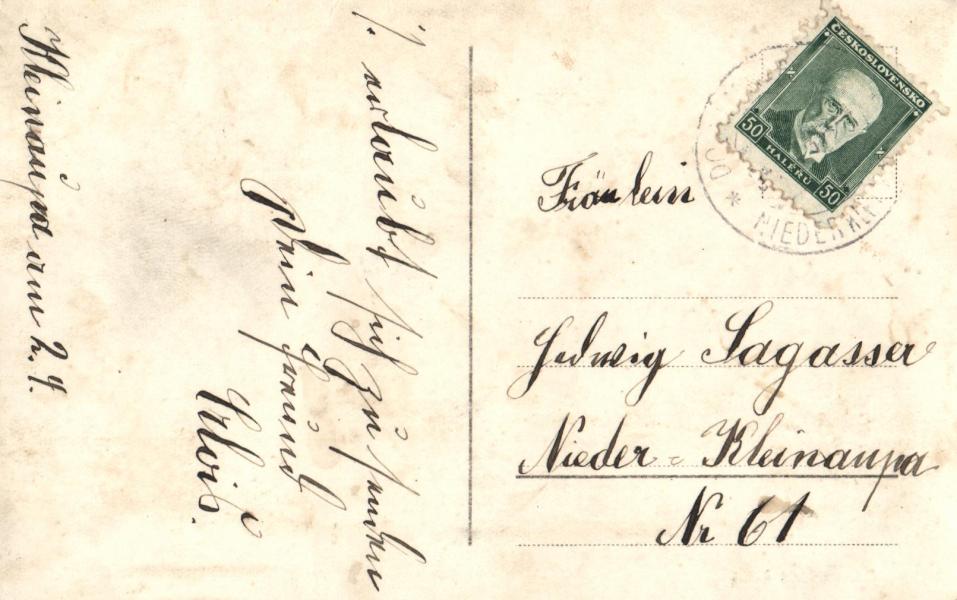 Kleinaupa am 2.4.
erlaubt sich zu senden
Dein Freund
Alois.
ČESKOSLOVENSKO
50 HALÉŘŮ 50
NIEDER KL
Fräulein
Hedwig Sagasser
Nieder-Kleinaupa
Nr 61